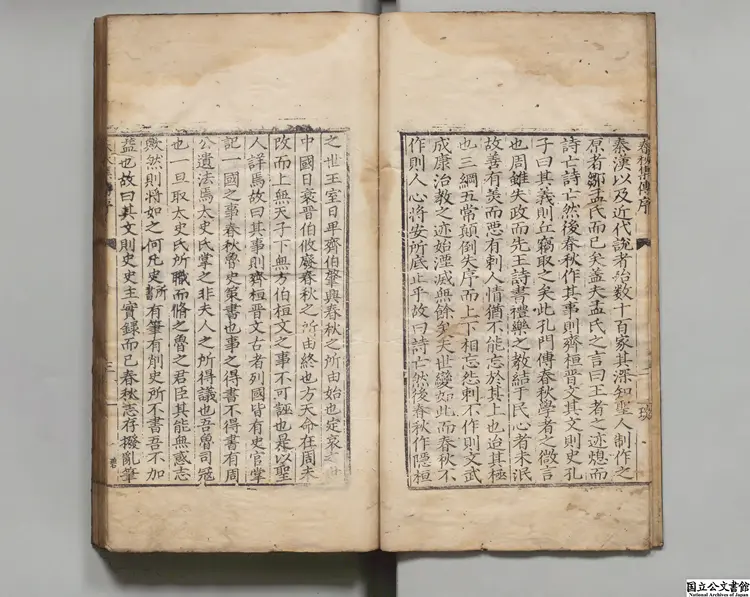 春秋集傳序
秦漢以及近代說者殆數十百家其深知聖人制作之
原者鄒孟氏而已矣蓋夫孟氏之言曰王者之迹熄而
詩亡詩亡然後春秋作其事則齊桓晉文其文則史孔
子曰其義則丘竊取之矣此孔門傳春秋學者之微言
也周雖失政而先王詩書禮樂之教結于民心者未泯
故善有美而惡有刺人情猶不能忘於其上也迨其極
也三綱五常顛倒失序而上下相忘怨刺不作則文武
成康治教之迹始湮滅無餘矣夫世變如此而春秋不
作則人心將安所底止乎故曰詩亡然後春秋作隱桓
之世王室日卑齊伯肇興春秋之所由始也定哀之
中國日衰晉伯攸廢春秋之所由終也方天命在周未
改而上無天子下無方伯桓文之事不可誣也是以聖
人詳焉故曰其事則齊桓晉文古者列國皆有史官掌
記一國之事春秋魯史策書也事之得書不得書有周
公遺法焉太史氏掌之非夫人之所得議也吾魯司寇
也一旦取太史氏所職而脩之魯之君臣其能無惑志
歟然則將如之何凡史所書有筆有削史所不書吾不加
益也故曰其文則史史主實錄而已春秋志存撥亂筆
春秋集傳序 三
国立公文書館
National Archives of Japan